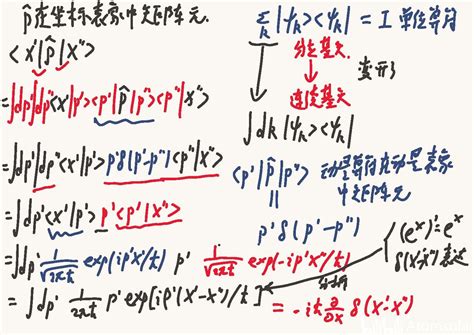 p̂在坐标表象中矩阵元.
<x'|p̂|x">
=∫dp'∫dp"<x'|p'><p'|p̂|p"><p"|x">
=∫dp'∫dp"<x'|p'>p'δ(p'-p")<p"|x">
=∫dp'<x'|p'> p'<p'|x">
=∫dp' 1/√2πħ exp(ip'x'/ħ) p' 1/√2πħ exp(-ip'x"/ħ)
=∫dp' 1/2πħ p' exp[ip'(x'-x")/ħ]
= -iħ ∂/∂x' δ(x'-x")
Σk |ψk><ψk| = I 单位算符
分立基矢
↓
连续基矢
变形
∫dk |ψk><ψk|
<p'|p̂|p"> 动量算符在动量表象中矩阵元
||
p'δ(p'-p")
(eˣ)'=eˣ
δ(x'-x")表达